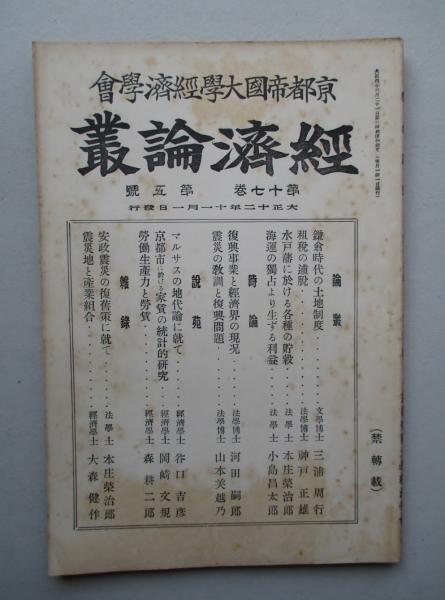 會學濟經學大國帝都京
叢論濟經
號五第 卷七十第
行發日一月一十年二十正大
論叢
鎌倉時代の土地制度・・・・・文學博士 三浦周行
租稅の逋脫・・・・・法學博士 神戶正雄
水戶藩に於ける各種の貯穀・・・・・法學士 本庄榮治郎
海運の獨占より生ずる利益・・・・・法學士 小島昌太郎
時論
復興事業と經濟界の現況・・・・・法學博士 河田嗣郎
震災の敎訓と復興問題・・・・・法學博士 山本美越乃
說苑
マルサスの地代論に就て・・・・・經濟學士 谷口吉彥
京都市に於ける家賃の統計的硏究・・・・・經濟學士 岡崎文規
勞働生產力と勞賃・・・・・經濟學士 森耕二郎
雜錄
安政震災の復舊策に就て・・・・・法學士 本庄榮治郎
震災地と產業組合・・・・・經濟學士 大森健作
(禁轉載)